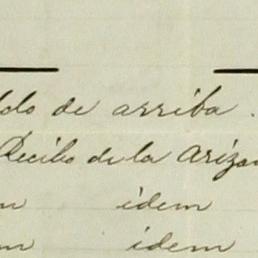 ldo de arriba.
Recibo de la Arizo
m idem
m idem